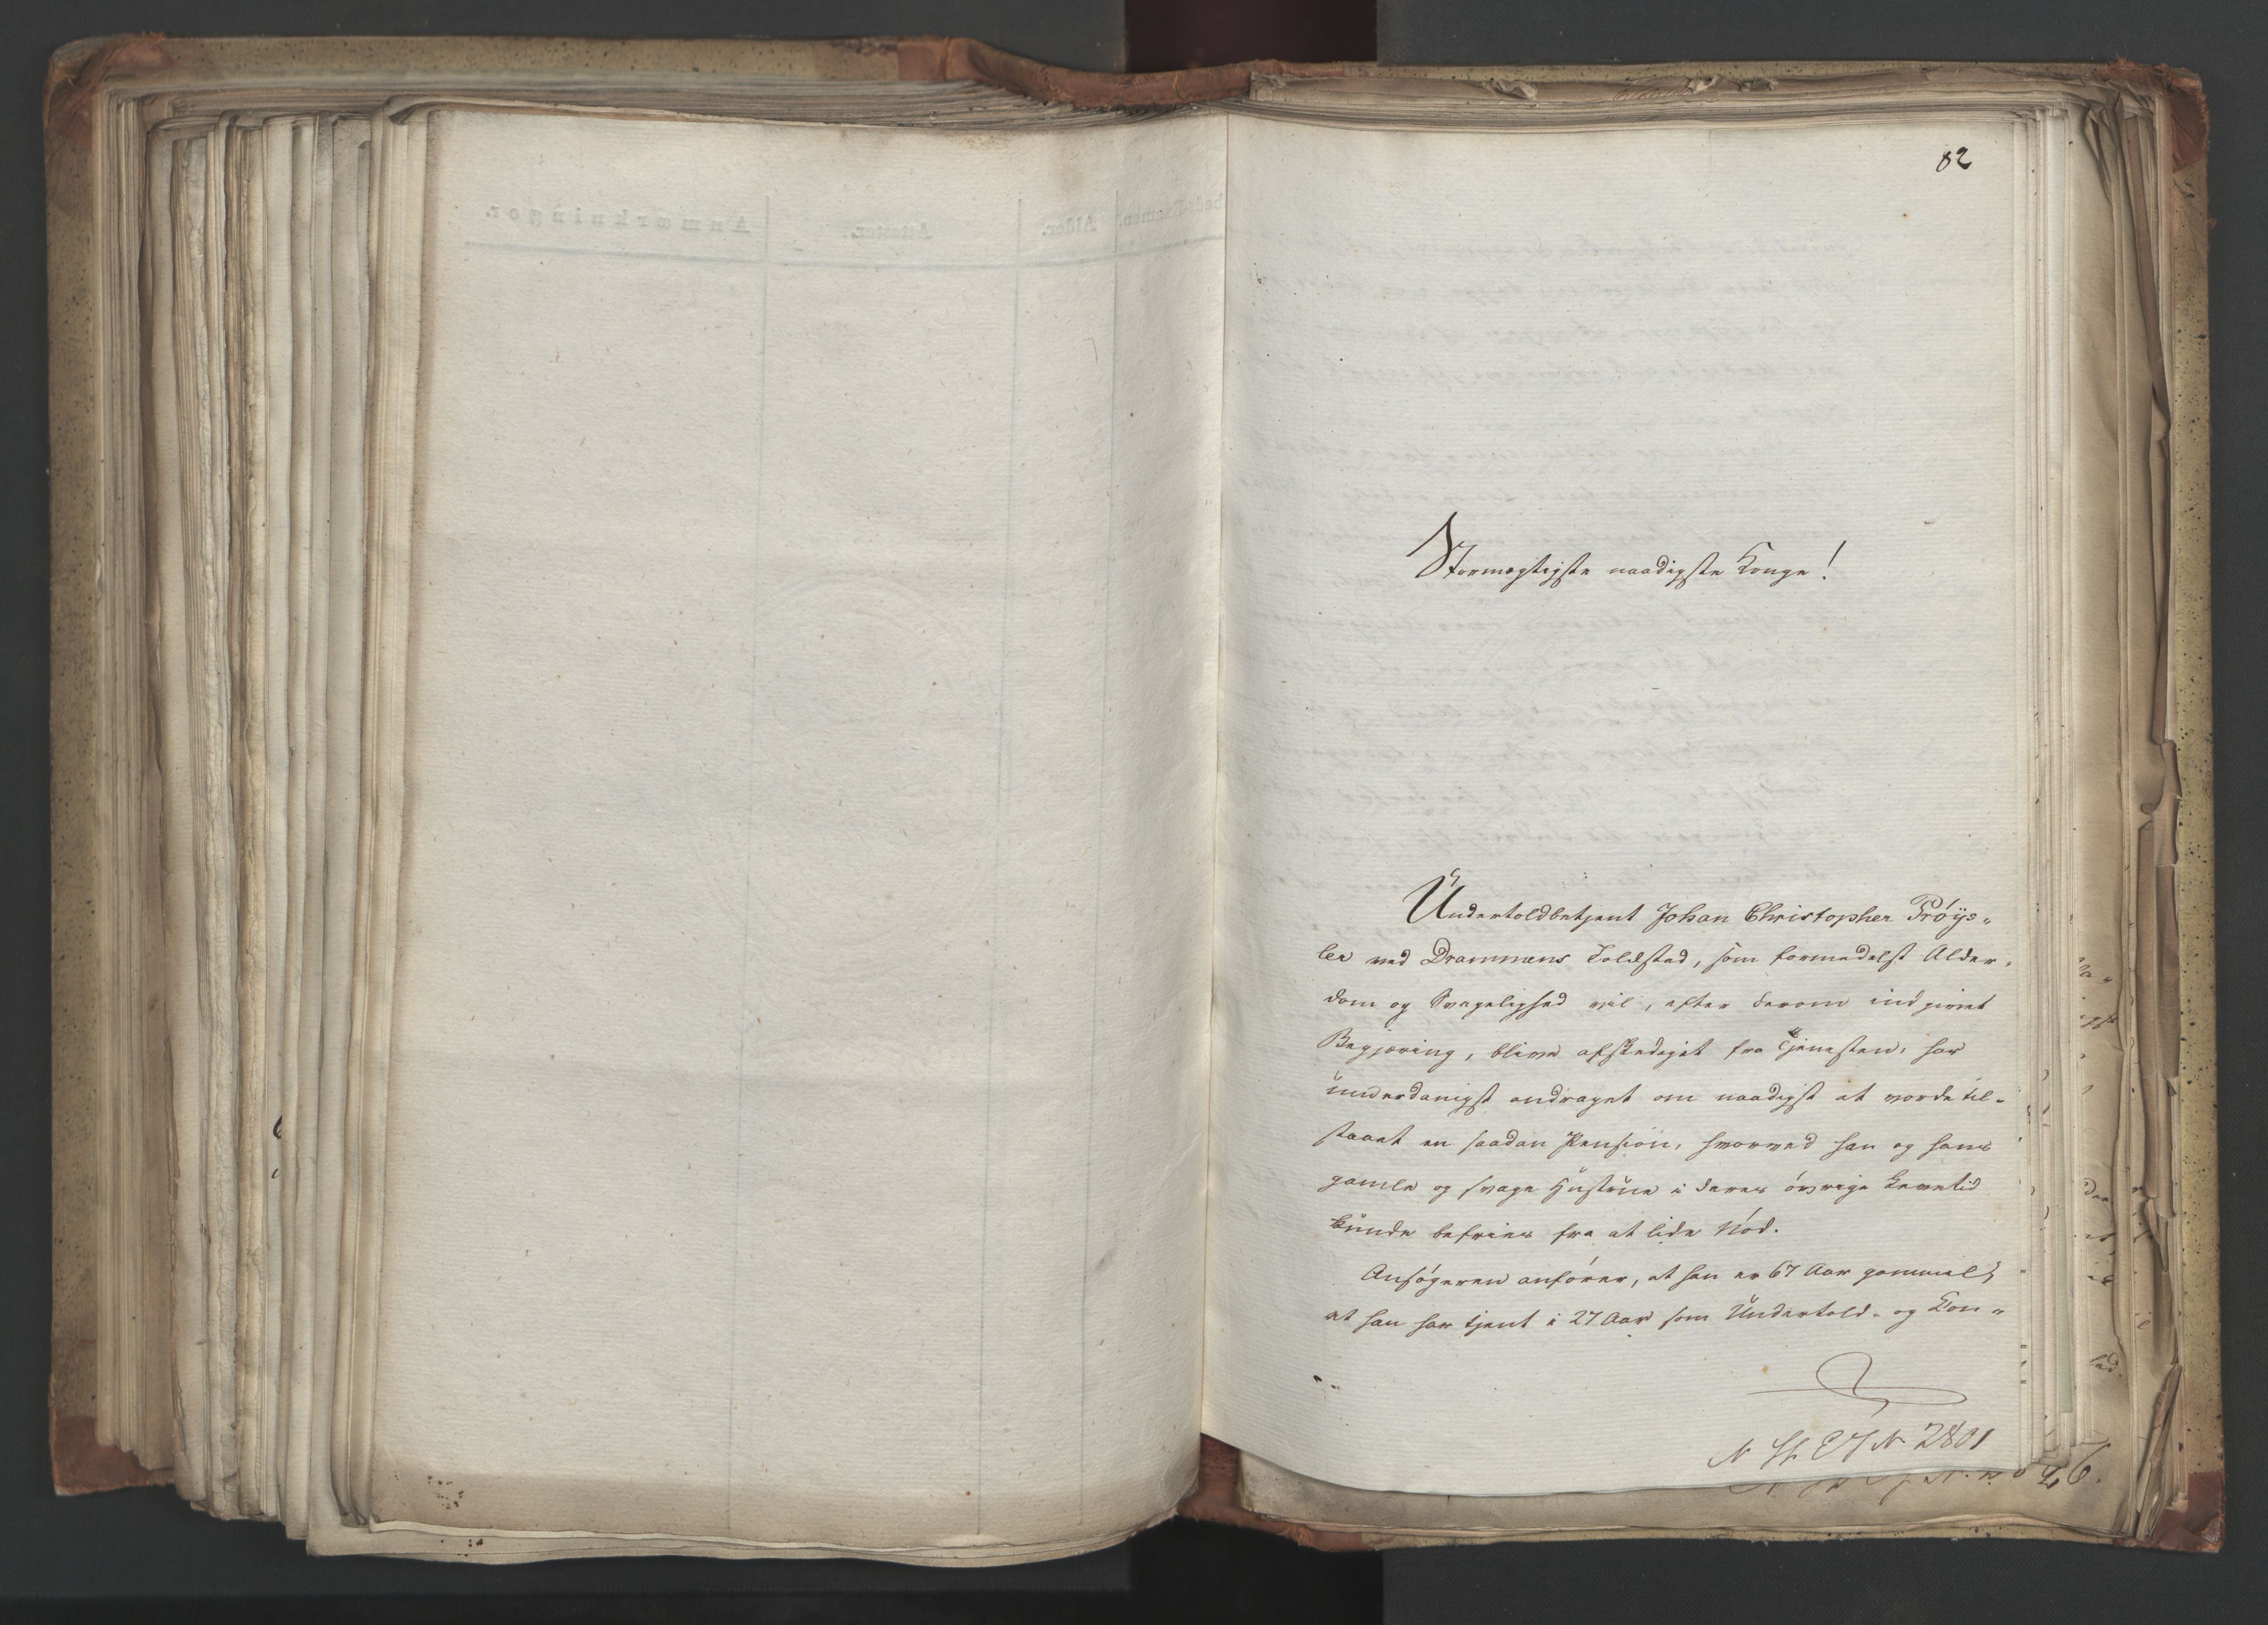 82
Stormægtigste naadigste Konge!
Undertoldbetjent Johan Christopher Frøys-
ler ved Drammens Toldsted, som formedelst Alder-
dom og Svagelighed vil, efter derom indgivet
Begjæring, blive afskediget fra Tjenesten, har
underdanigst andraget om naadigst at vorde til-
staaet en saadan Pension, hvorved han og hans
gamle og svage Hustrue i deres øvrige Levetid
kunde befries fra at lide Nød.
Ansøgeren anfører, at han er 67 Aar gammel,
at han har tjent i 27 Aar som Undertold- og Kon-
2801
26.